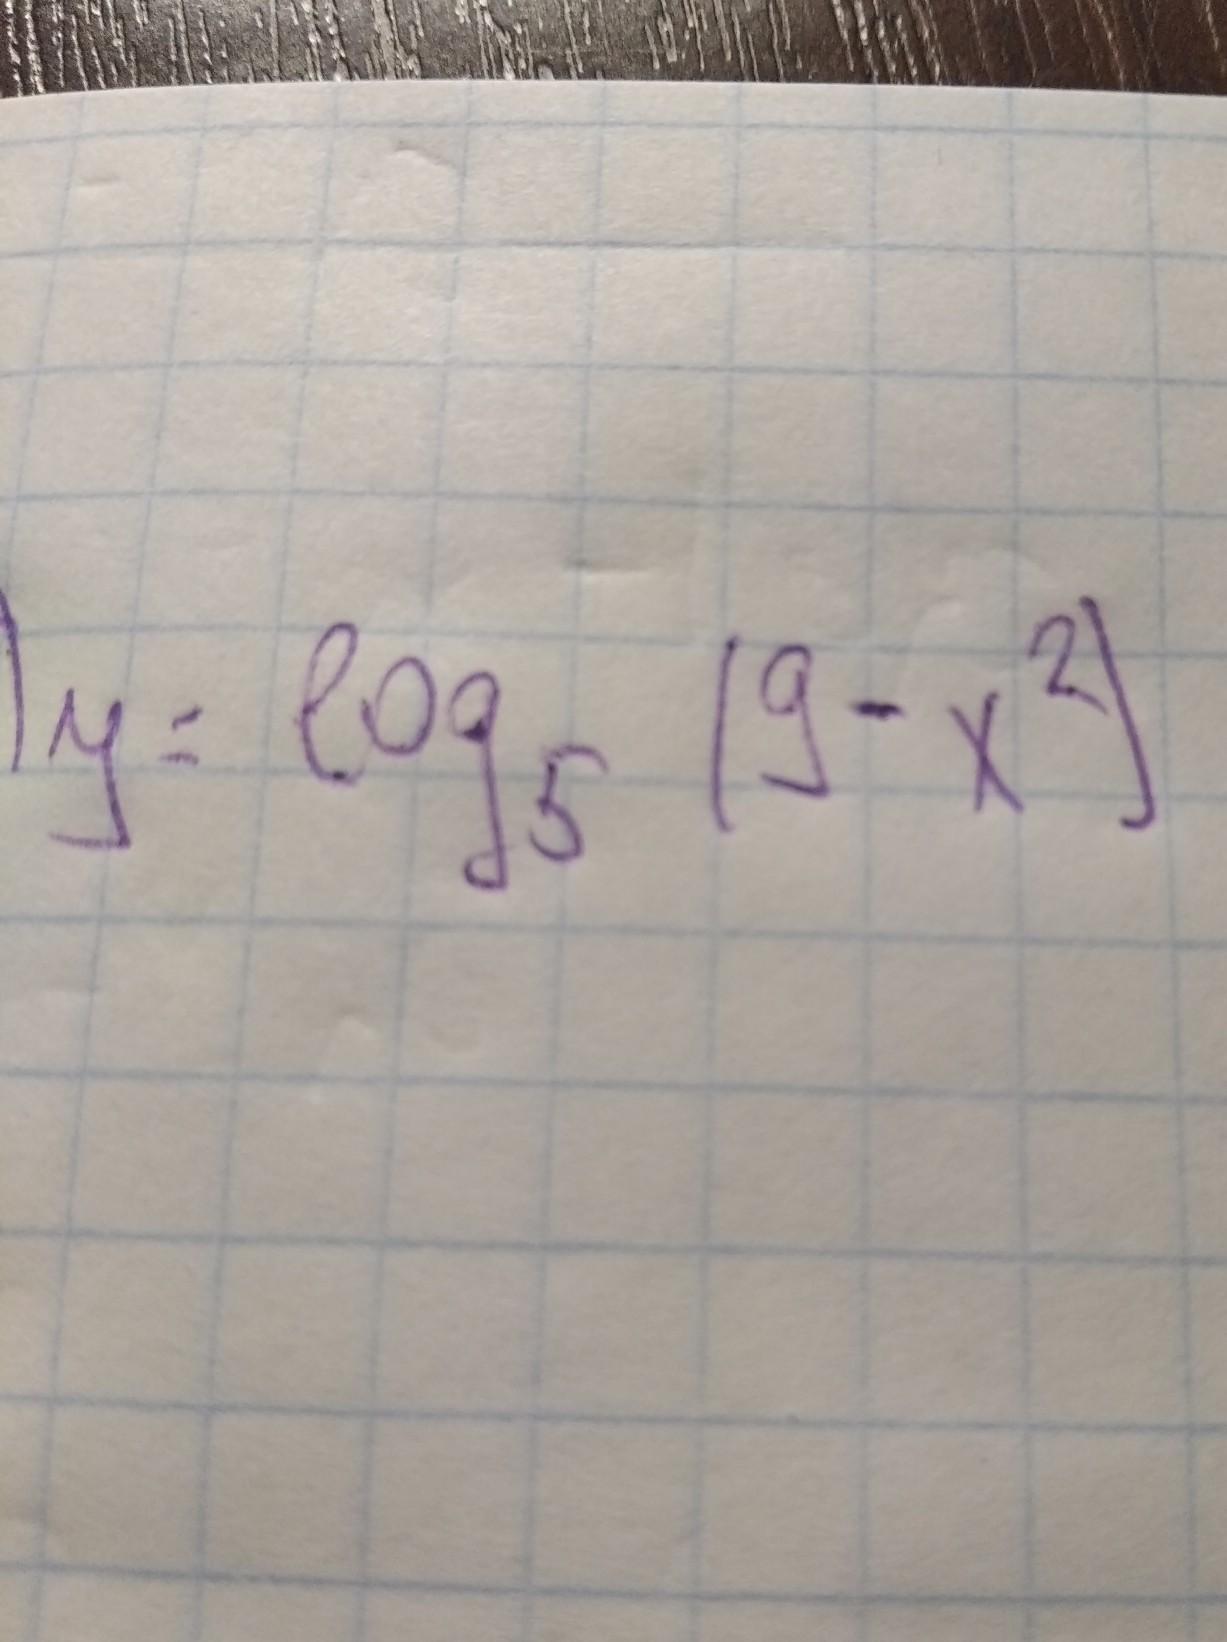 ) y = log₅ (9 - x²)